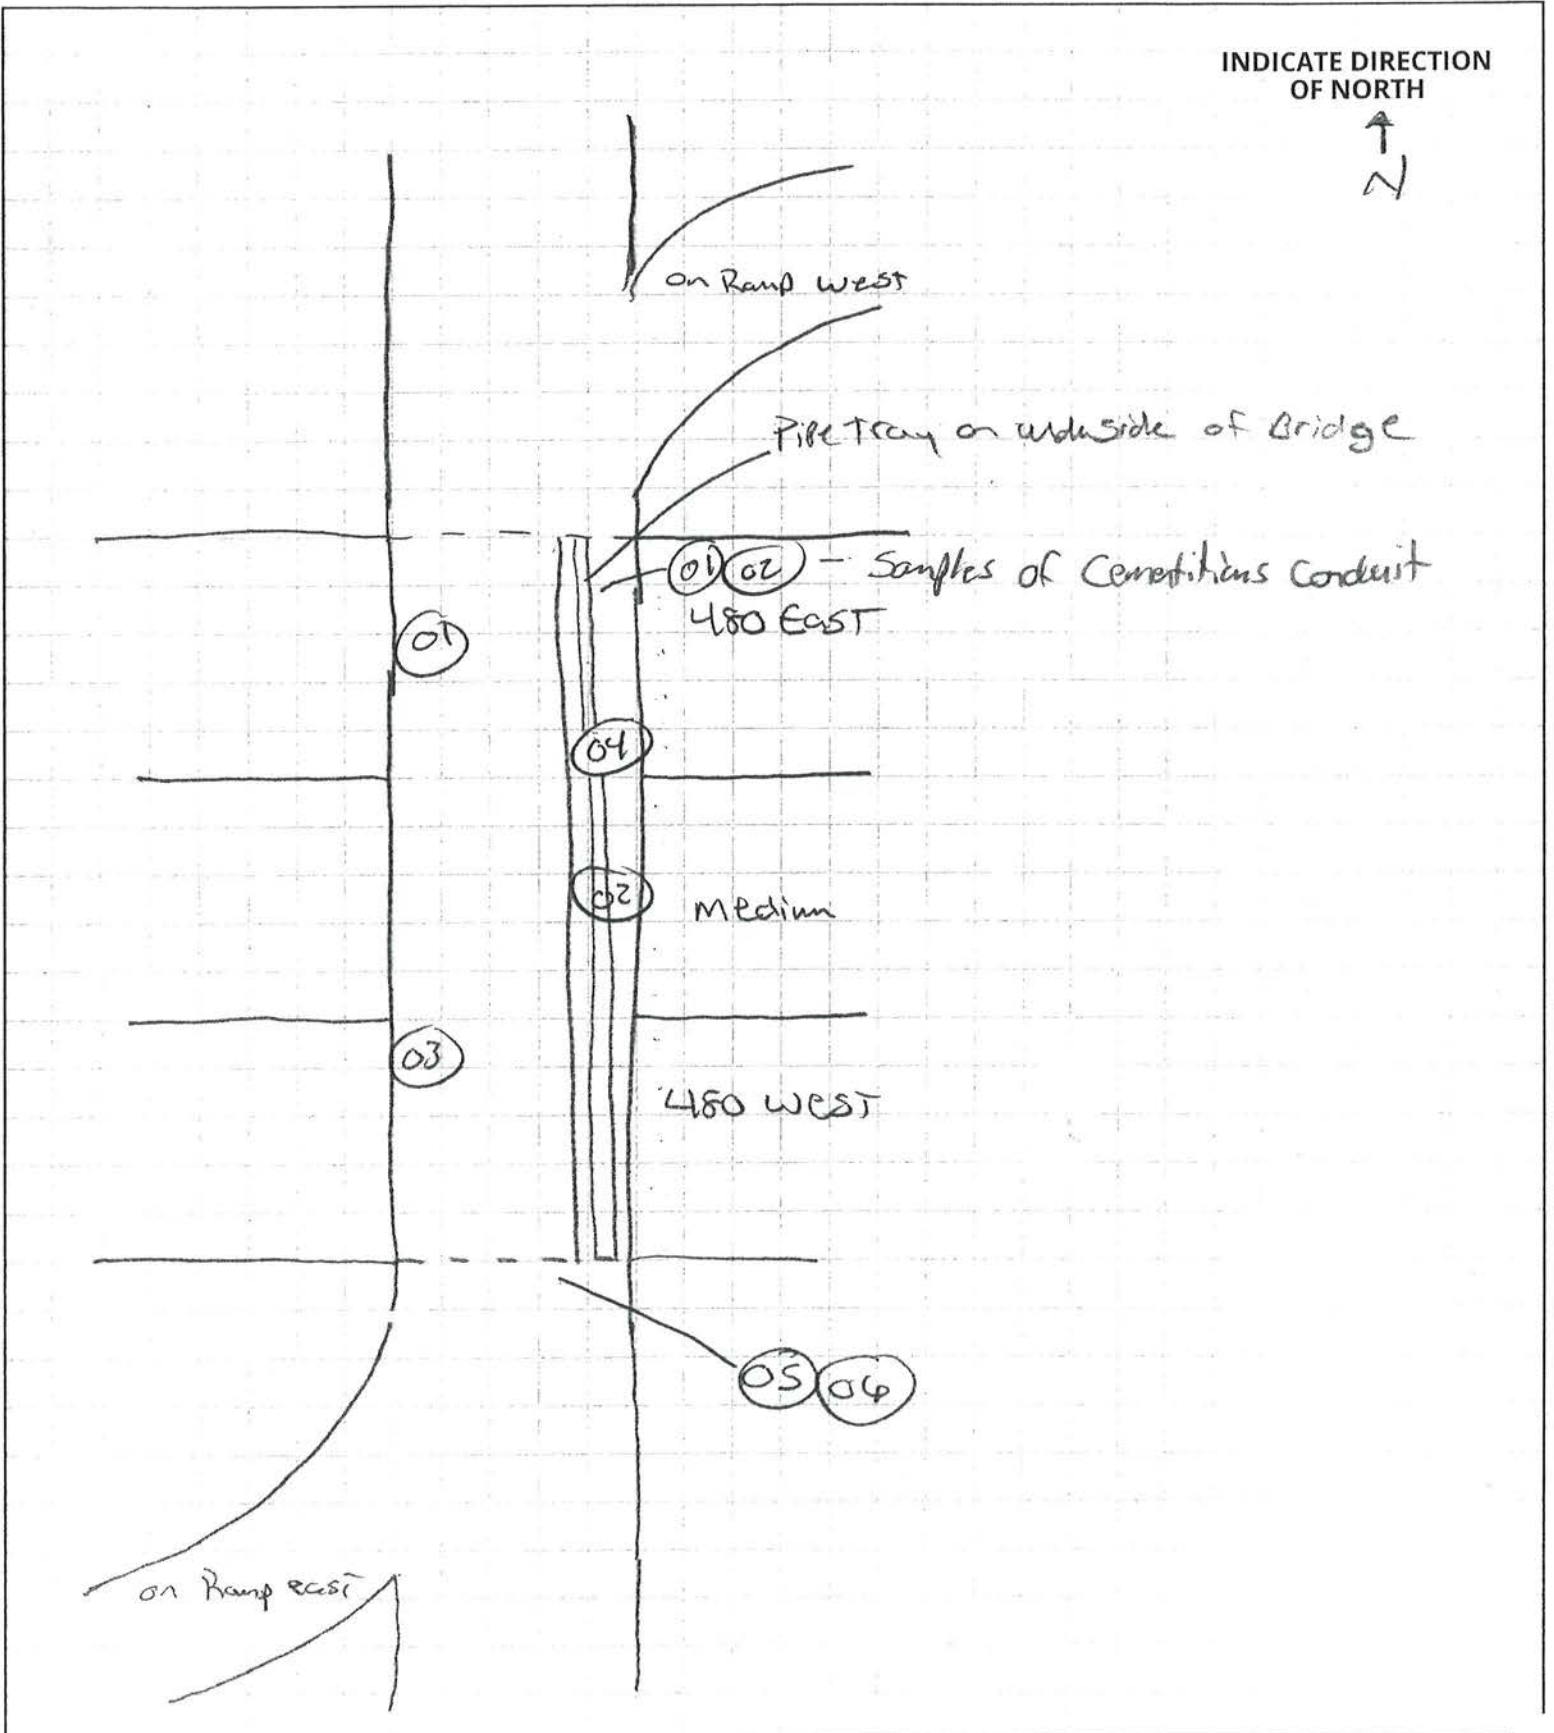 INDICATE DIRECTION
OF NORTH
N
on Ramp west
Pipe Tray on underside of Bridge
01 02 - Samples of Cementitious Conduit
480 EAST
01
04
02
Medium
03
480 WEST
05 06
on Ramp east